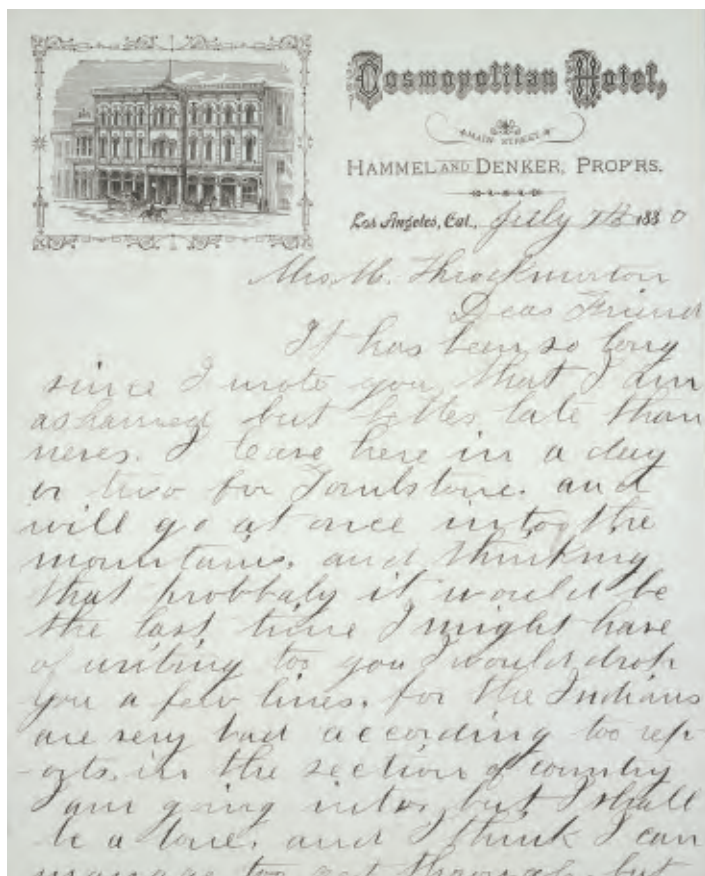 Cosmopolitan Hotel,
MAIN STREET.
HAMMEL AND DENKER, PROP'RS.
Los Angeles, Cal., July 1880
Mrs. M. Throckmorton
Dear Friend
It has been so long
since I wrote you, that I am
ashamed but better late than
never. I leave here in a day
or two for Tombstone. and
will go at once intoo the
mountains. and thinking
that probbaly it would be
the last time I might have
of writing too you I would drop
you a few lines. for the Indians
are very bad according too rep-
-orts. in the section of country
I am going intoo, but I shall
be a lone. and I think I can
manage too get through but